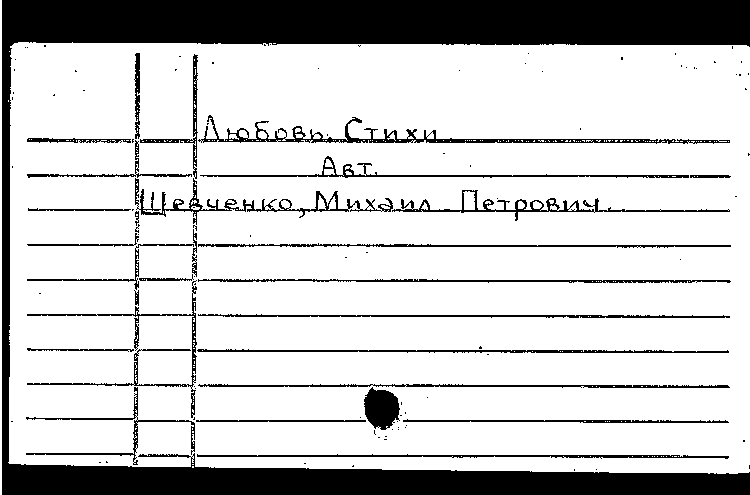 Любовь. Стихи.
Авт.
Шевченко, Михаил Петрович.